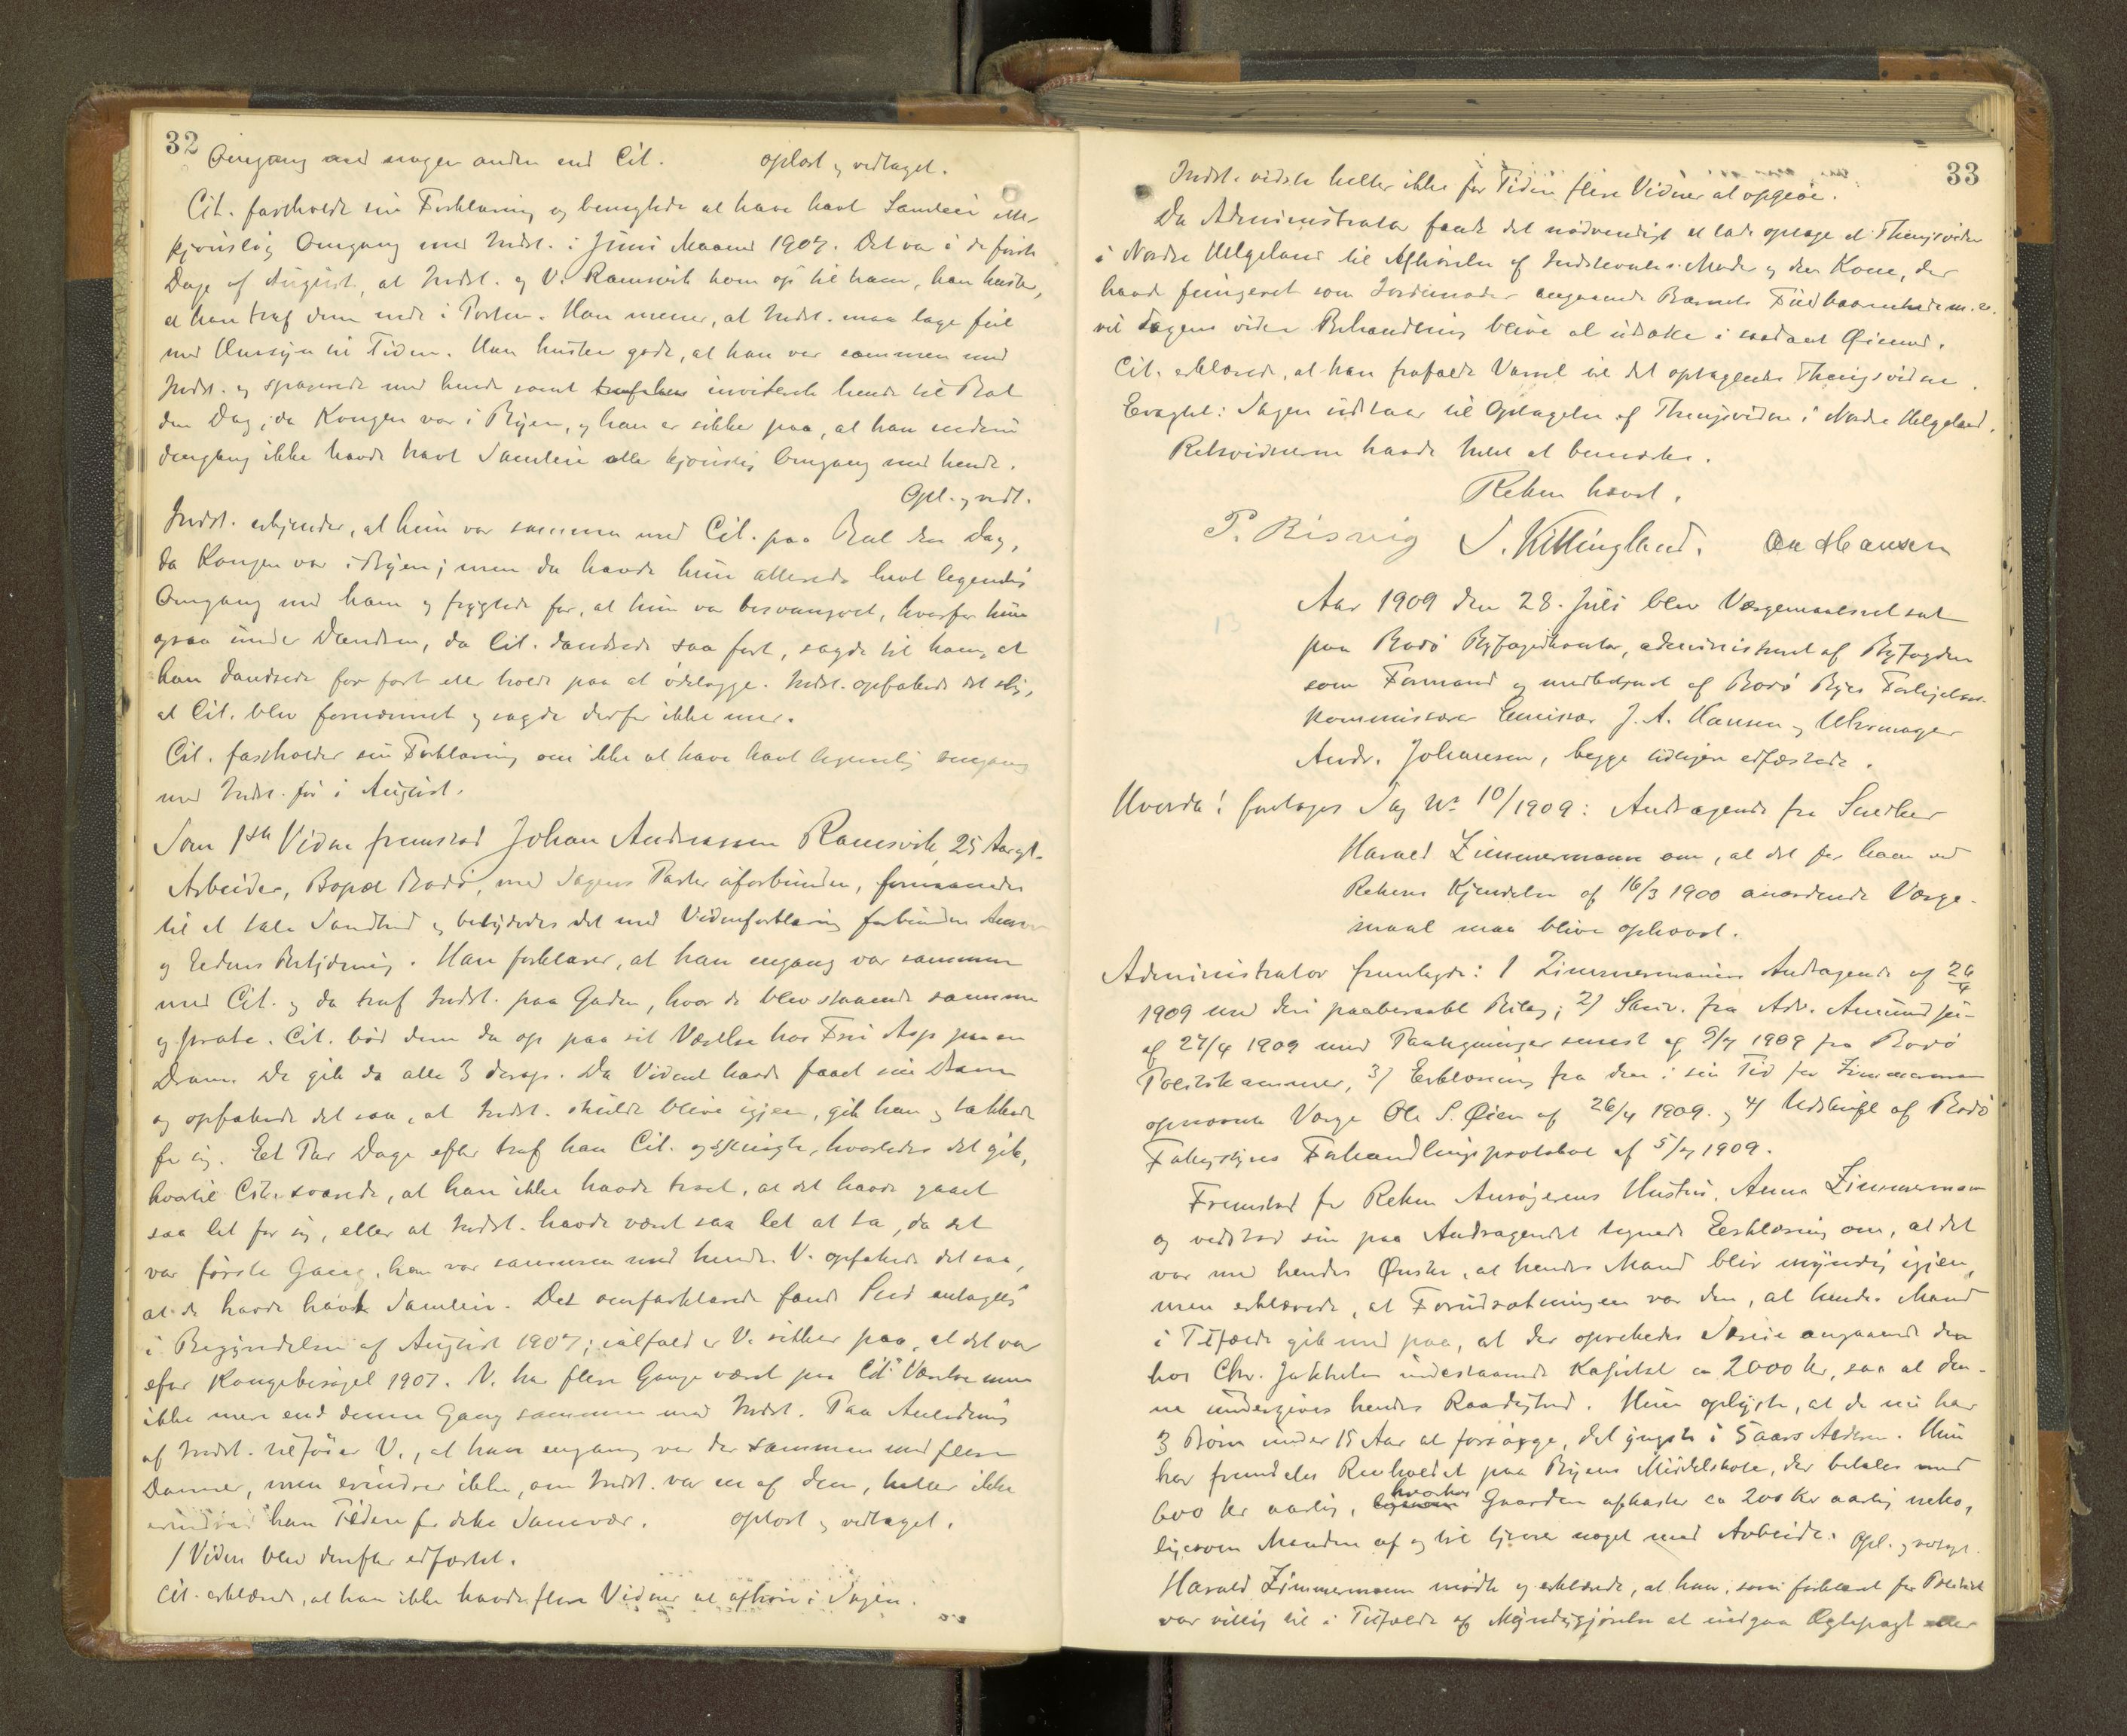 32
Omgang med nogen anden end Cit. oplæst og vedtaget.
Cit. fastholdt sin Forklaring og benegtede at have havt Samleie eller
kjønslig Omgang med Indst. i Juni Maaned 1907. Det var i de første
Dage af August, at Indst. og V. Ramsvik kom op til ham, han husker,
at han traf dem nede i Porten. Han mener, at Indst. maa tage feil
med Hensyn til Tiden. Han husker godt, at han var sammen med
Indst. og spaserede med hende samt inviterte hende til Bal
den Dag, da Kongen var i Byen, og han er sikker paa, at han endnu
dengang ikke havde havt Samleie eller kjønslig Omgang med hende.
Opl. og vedt.
Indst. erkjender, at hun var sammen med Cit. paa Bal den Dag,
da Kongen var i Byen; men da havde hun allerede havt legemlig
Omgang med ham og frygtede for, at hun var besvangret, hvorfor hun
ogsaa under Dandsen, da Cit. dandsede saa fort, sagde til ham, at
han dandsede for fort eller holdt paa at ødelægge. Indst. opfattede det slig,
at Cit. blev fornærmet og sagde derfor ikke mer.
Cit. fastholder sin Forklaring om ikke at have havt legemlig omgang
med Indst. før i August.
Som 1ste Vidne fremstod Johan Andreassen Ramsvik, 25 Aar gl.
Arbeider, Bopæl Bodø, med Sagens Parter uforbunden, formanedes
til at tale Sandhed og betydedes det med Vidneforklaring forbundne Ansvar
og Edens Betydning. Han forklarer, at han engang var sammen
med Cit. og da traf Indst. paa Gaden, hvor de blev staaende sammen
og prate. Cit. bød dem da op paa sit Værelse hos Fru Asp paa en
Dram. De gik da alle 3 derop. Da Vidnet havde faaet sin Dram
og opfattede det saa, at Indst. skulde blive igjen, gik han og takkede
for sig. Et Par Dage efter traf han Cit. og spurgte, hvorledes det gik,
hvortil Cit. svarede, at han ikke havde troet, at det havde gaaet
saa let for sig, eller at Indst. havde været saa let at ta, da det
var første Gang, han var sammen med hende. V. opfattede det saa,
at de havde havt Samleie. Det omforklarede fandt Sted antagelig
i Begyndelsen af August 1907; ialfald er V. sikker paa, at det var
efter Kongebesøget 1907. V. har flere Gange været paa Cit's Værelse men
ikke mere end denne Gang sammen med Indst. Paa Anledning
af Indst. tilføier V., at han engang var der sammen med flere
Damer, men erindrer ikke, om Indst. var en af dem, heller ikke
erindrer han Tiden for dette Samvær. oplæst og vedtaget.
/ Vidnet blev derefter edfæstet.
Cit. erklærede, at han ikke havde flere Vidner at afhøre i Sagen.
33
Indst. vidste heller ikke for Tiden flere Vidner at opgive.
Da Administrator fandt det nødvendigt at lade optage et Thingsvidne
i Nordre Helgeland til Afhørelse af Indstevntes Moder og den Kone, der
havde fungeret som Jordmoder angaaende Barnets Fuldbaarenhed m.v.
vil Sagens videre Behandling blive at udsætte i saadant Øiemed.
Cit. erklærede, at han frafaldt Varsel til det optagende Thingsvidne.
Eragtet: Sagen udstaar til Optagelse af Thingsvidne i Nordre Helgeland.
Retsvidnerne havde Intet at bemærke.
Retten hævet.
P. Risvig J. Killingland. Ca Hansen
Aar 1909 den 28. Juli blev Værgemaalsret sat
paa Bodø Byfogedkontor, administreret af Byfogden
som Formand og medbetjent af Bodø Byes Forligelses-
kommissærer Emissær J. A. Hansen og Uhrmager
Andr. Johansen, begge tidligere edfæstede.
Hvorda: foretoges Sag No 10/1909: Andragende fra Snedker
Harald Zimmermann om, at det for ham ved
Rettens Kjendelse af 16/3 1900 anordnede Værge-
maal maa blive ophævet.
Administrator fremlagde: 1 Zimmermanns Andragende af 26/4
1909 med deri paaberaabt Bilag; 2) Skriv. fra Adv. Amundsen
af 27/4 1909 med Paategninger senest af 9/7 1909 fra Bodø
Politikammer, 3) Erklæring fra den i sin Tid for Zimmermann
opnævnte Værge Ole S. Øien af 26/4 1909. og 4) Udskrift af Bodø
Fattigstyres Forhandlingsprotokol af 5/7 1909.
Fremstod for Retten Ansøgerens Hustru, Anna Zimmermann
og vedstod sin paa Andragendet tegnede Erklæring om, at det
var med hendes Ønske, at hendes Mand blir myndig igjen,
men erklærede, at Forudsætningen var den, at hendes Mand
i Tilfælde gik med paa, at der oprettedes Særeie angaaende den
hos Chr. Jakhelln indestaaende Kapital ca 2000 kr, saa at den-
ne undergives hendes Raadighed. Hun oplyste, at de nu har
3 Børn under 15 Aar at forsørge, det yngste i 5 aars Alderen. Hun
har fremdeles Renholdet paa Byens Middelskole, der betales med
600 kr aarlig, hvorhos Gaarden afkaster ca 200 kr aarlig netto,
ligesom Manden af og til tjener noget med Arbeide. Opl. og vedtat.
Harald Zimmermann mødte og erklærede, at han, som forklaret for Politiet
var villig til i Tilfælde af Myndiggjørelse at indgaa Ægtepagt eller